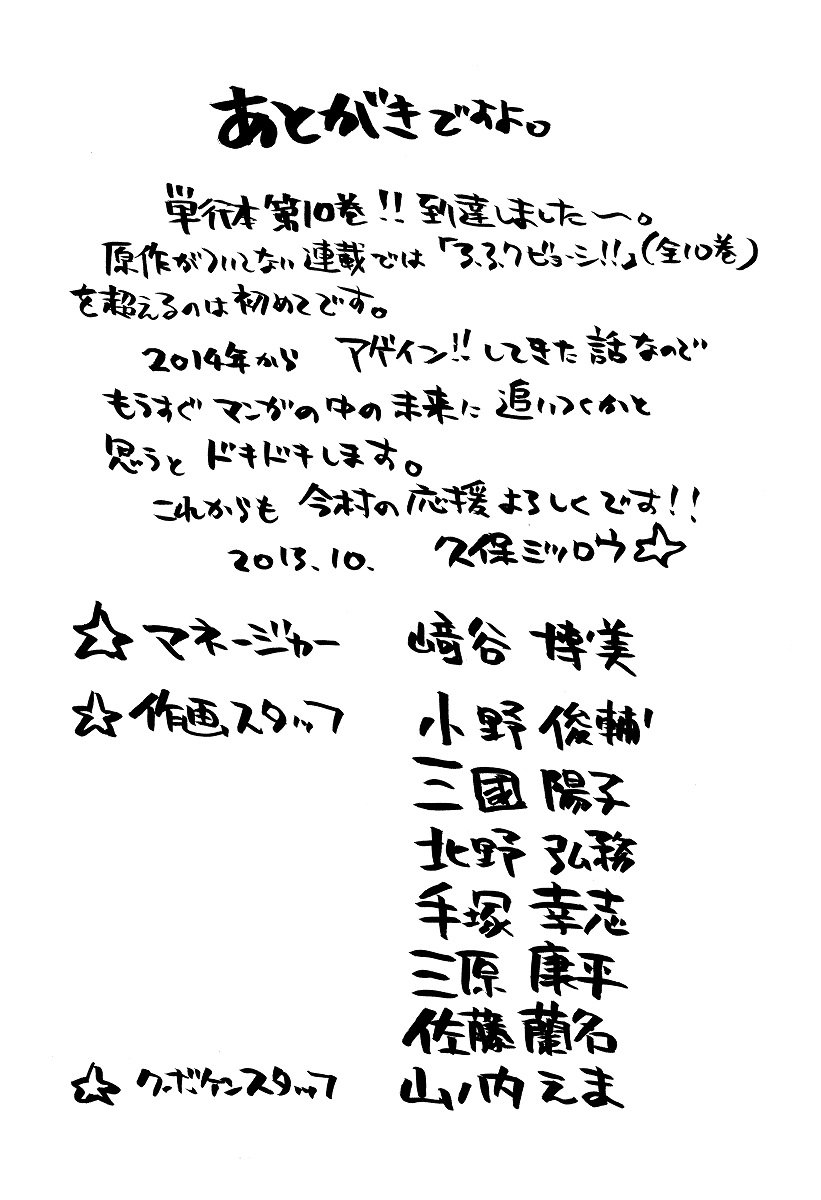 あとがきですよ。
単行本第10巻!!到達しました〜。
原作がついてない連載では「3.3.7ビョーシ!!」(全10巻)
を超えるのは初めてです。
2014年から アゲイン!!してきた話なので
もうすぐ マンガの中の未来に 追いつくかと
思うと ドキドキします。
これからも 今村の応援よろしくです!!
2013.10. 久保ミツロウ☆
☆マネージャー 﨑谷 博美
☆作画スタッフ 小野 俊輔
三國 陽子
北野 弘務
手塚 幸志
三原 康平
佐藤 蘭名
☆クボケンスタッフ 山ノ内 えま